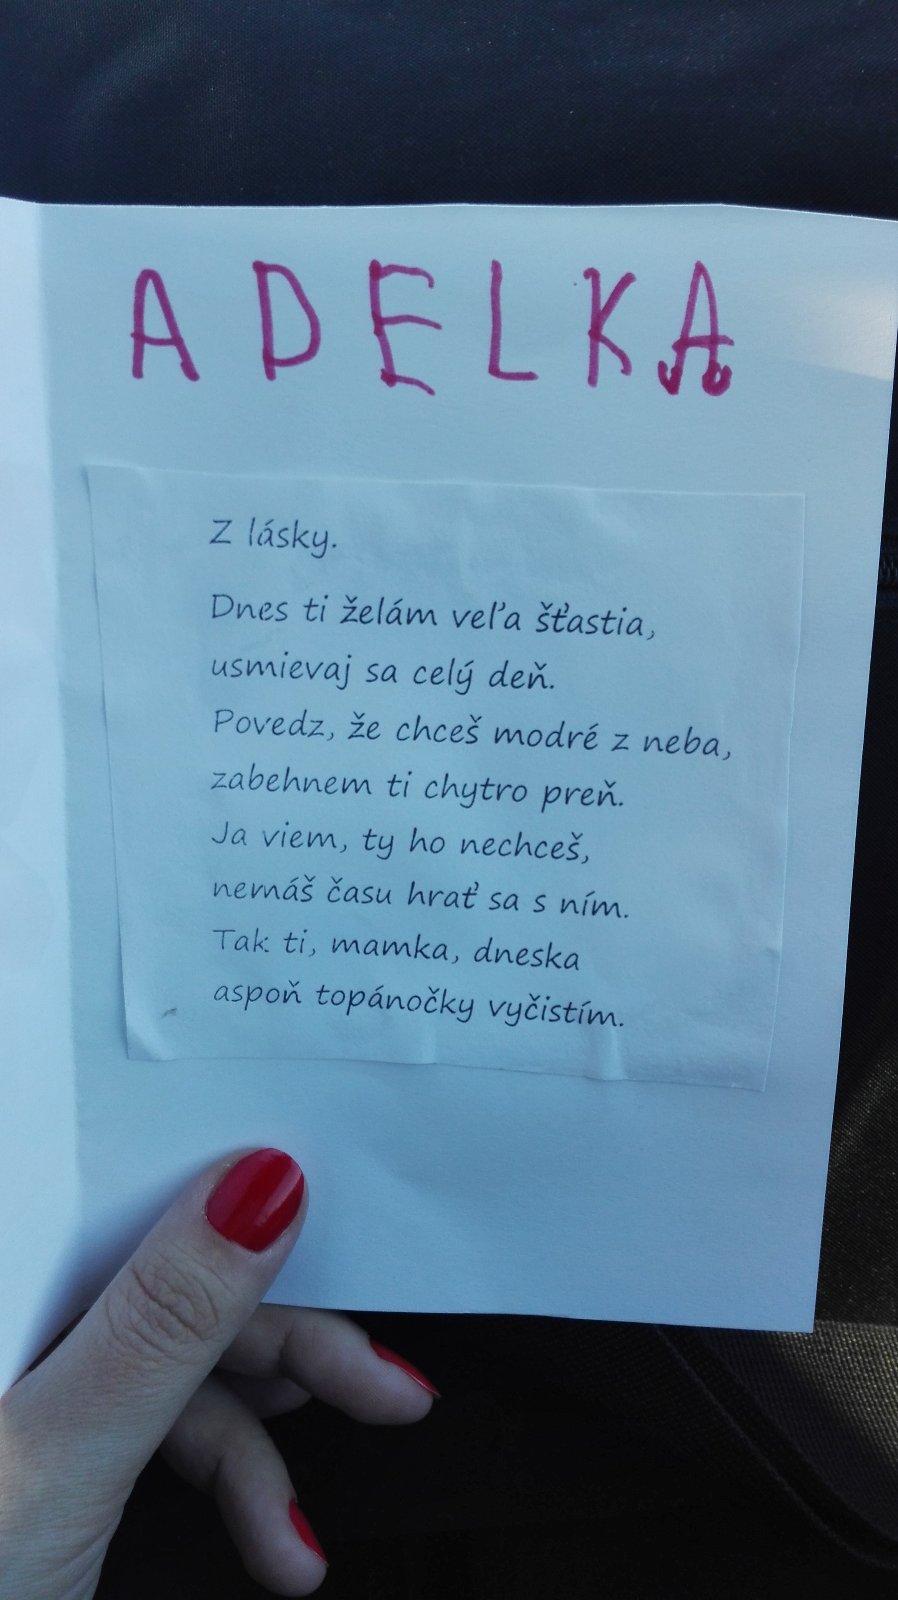 ADELKA
Z lásky.
Dnes ti želám veľa šťastia,
usmievaj sa celý deň.
Povedz, že chceš modré z neba,
zabehnem ti chytro preň.
Ja viem, ty ho nechceš,
nemáš času hrať sa s ním.
Tak ti, mamka, dneska
aspoň topánočky vyčistím.